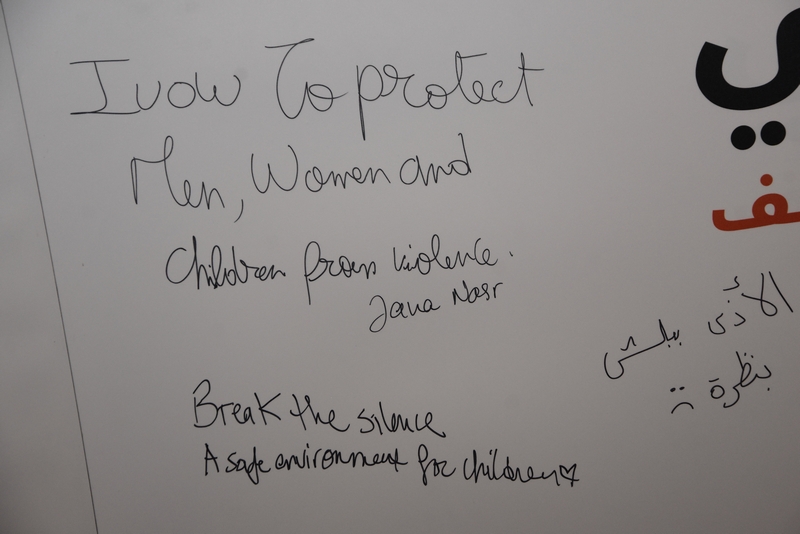 I vow To protect
Men, Women and
Children from violence.
Jana Nasr
Break the silence
A safe environment for children♡
ي
ف
الأذى ببلش
بنظرة